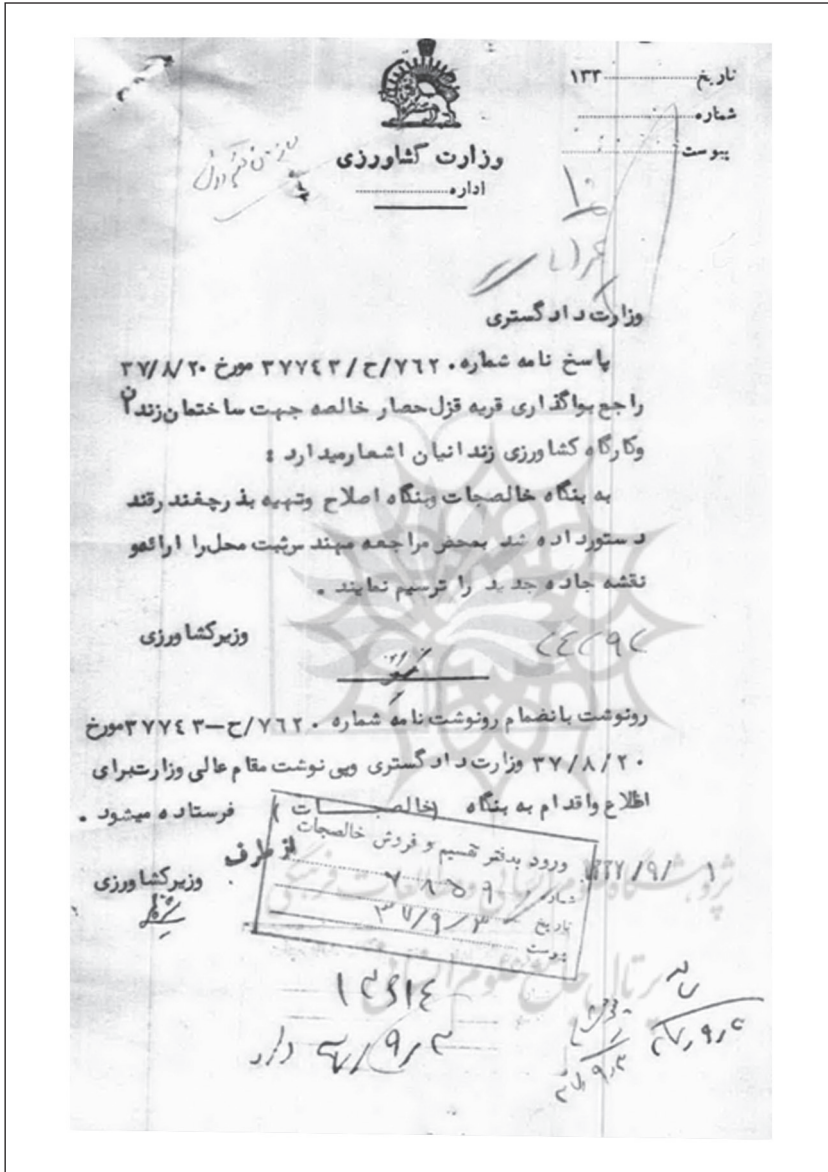 تاریخ ۱۳۳
شماره
پیوست
وزارت کشاورزی
اداره
وزارت دادگستری
پاسخ نامه شماره ۷۶۲۰/ح/۳۷۷۴۳ مورخ ۳۷/۸/۲۰
راجع بواگذاری قریه قزل‌حصار خالصه جهت ساختمان زندان
وکارگاه کشاورزی زندانیان اشعارمیدارد :
به بنگاه خالصجات وبنگاه اصلاح وتهیه بذرچغندرقند
دستورداده شد بمحض مراجعه مهندس ثبت محل‌را ارائه‌و
نقشه جاده جدید را ترسیم نمایند .
وزیرکشاورزی
رونوشت بانضمام رونوشت نامه شماره ۷۶۲۰/ح–۳۷۷۴۳ مورخ
۳۷/۸/۲۰ وزارت دادگستری وپی نوشت مقام عالی وزارت‌برای
اطلاع واقدام به بنگاه (خالصجات) فرستاده میشود .
ورود بدفتر تقسیم و فروش خالصجات
شماره ۷۸۵۹
تاریخ ۳۷/۹/۳
پیوست
از طرف
وزیرکشاورزی
۱۳۳۷/۹/ ۱
پژوهشگاه علوم انسانی و مطالعات فرهنگی
پرتال جامع علوم انسانی